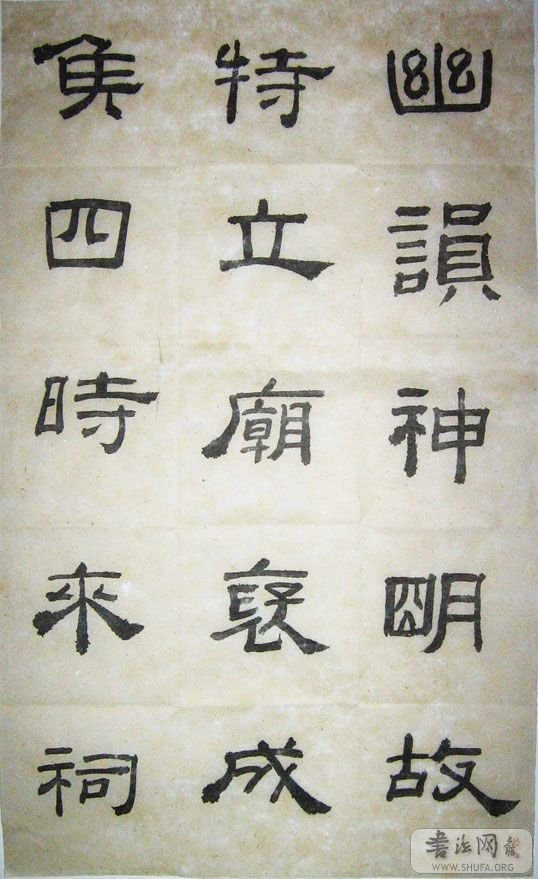 幽神明故
特立廟褒成
侯四時來祠
書法网
WWW.SHUFA.ORG